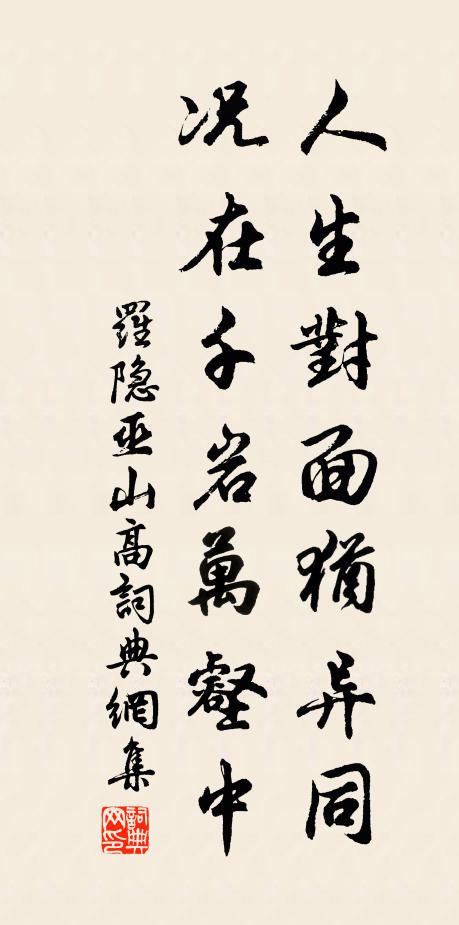 人生對面猶异同
况在千岩萬壑中
羅隐巫山高詞典網集
詞典网印